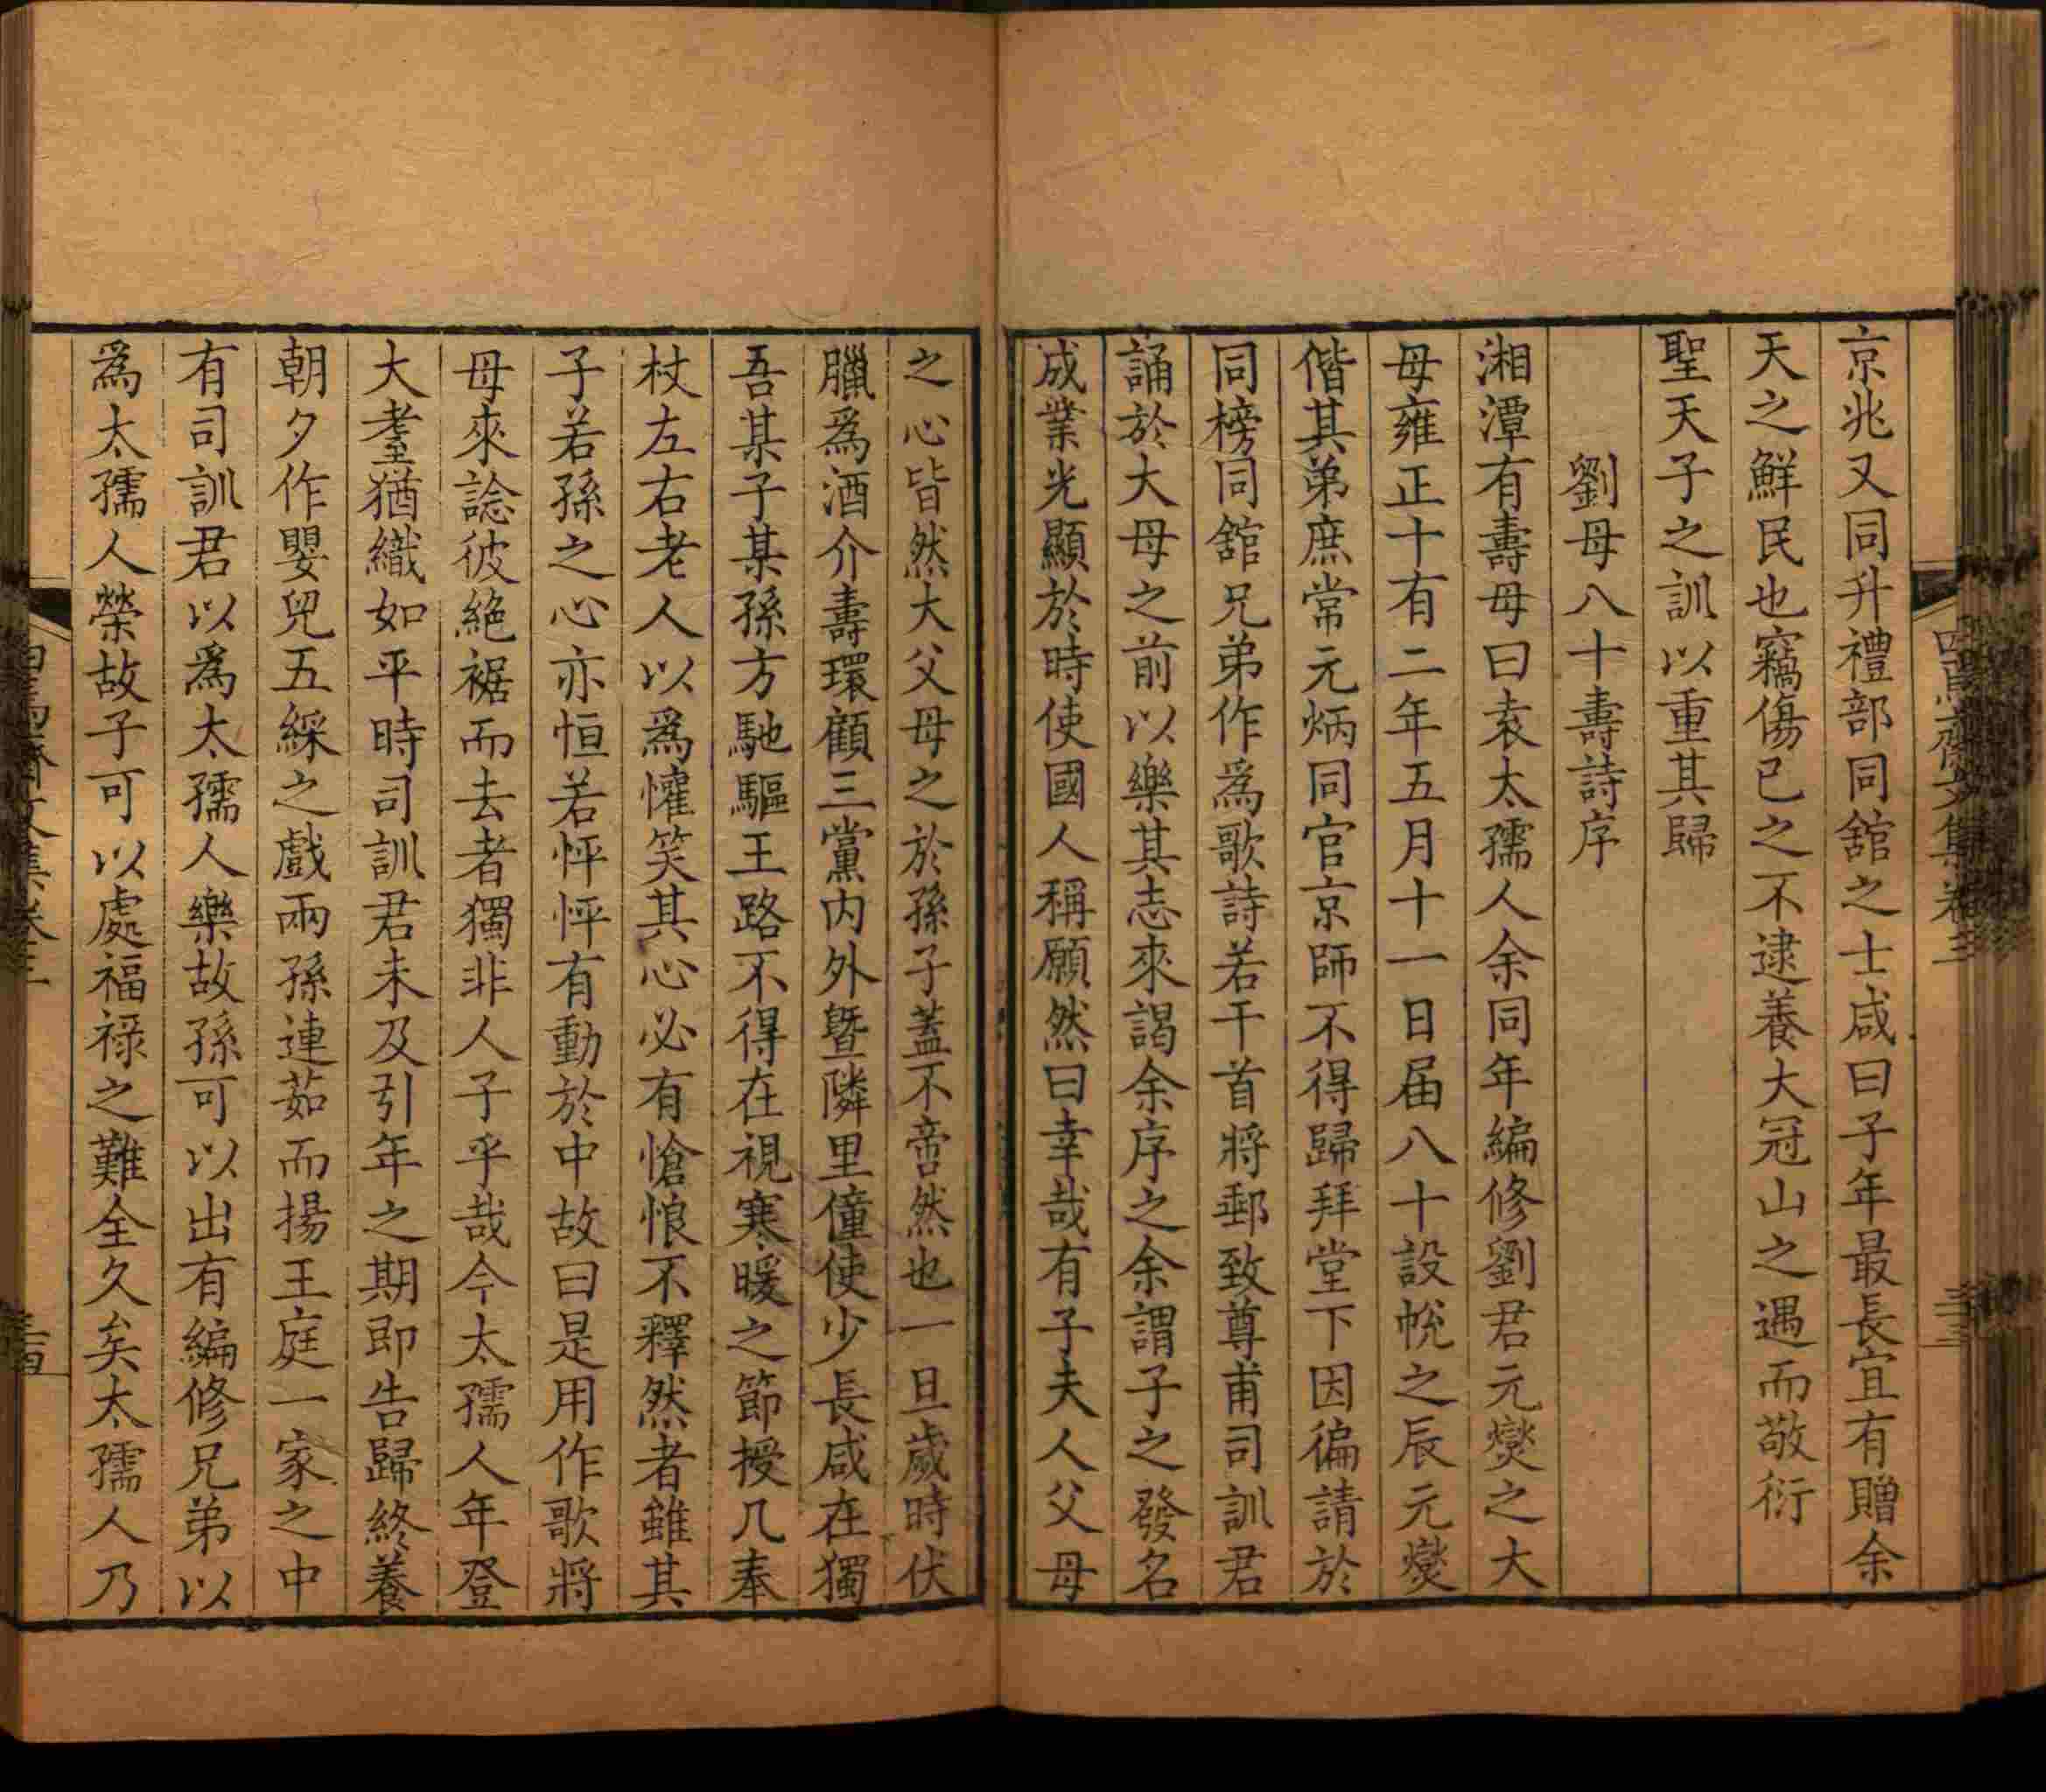 京兆又同升禮部同舘之士咸曰子年最長宜有贈余
天之鮮民也竊傷已之不逮養大冠山之遇而敬衍
聖天子之訓以重其歸
劉母八十壽詩序
湘潭有壽母曰袁太孺人余同年編修劉君元爕之大
母雍正十有二年五月十一日届八十設帨之辰元爕
偕其弟庶常元炳同官京師不得歸拜堂下因徧請於
同榜同舘兄弟作爲歌詩若干首將郵致尊甫司訓君
誦於大母之前以樂其志來謁余序之余謂子之發名
成業光顯於時使國人稱願然曰幸哉有子夫人父母
之心皆然大父母之於孫子蓋不啻然也一旦歲時伏
臘爲酒介壽環顧三黨内外暨隣里僮使少長咸在獨
吾某子某孫方馳驅王路不得在視寒暖之節授几奉
杖左右老人以爲懽笑其心必有愴悢不釋然者雖其
子若孫之心亦恒若怦怦有動於中故曰是用作歌將
母來諗彼絶裾而去者獨非人子乎哉今太孺人年登
大耋猶織如平時司訓君未及引年之期即告歸終養
朝夕作嬰兒五綵之戲兩孫連茹而揚王庭一家之中
有司訓君以爲太孺人樂故孫可以出有編修兄弟以
爲太孺人榮故子可以處福禄之難全久矣太孺人乃